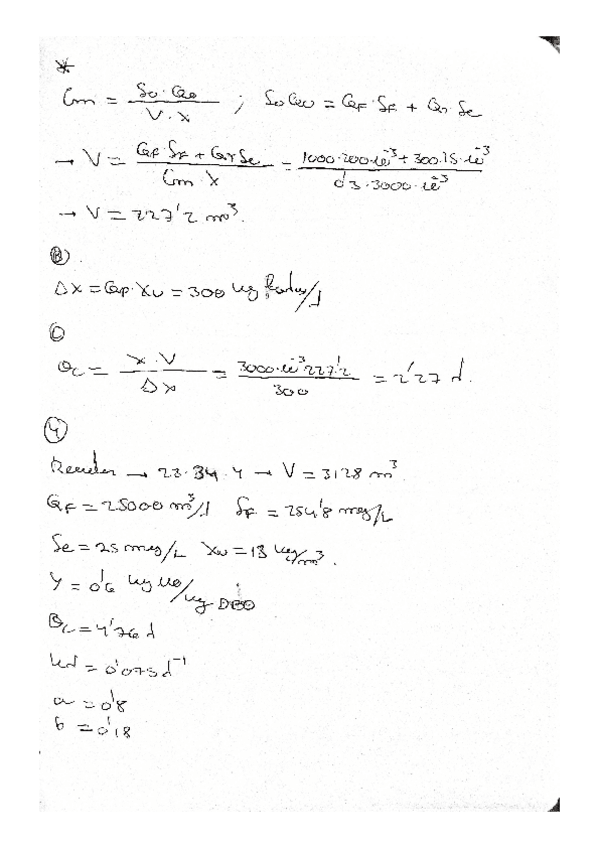 *
Cm = So·Qo / V·X ; SoQo = QF·SF + Qr·Se
→ V = QF·SF + Qr·Se / Cm·X = 1000·200·10^-3 + 300·15·10^-3 / 0'3·3000·10^-3
→ V = 227'2 m³.
B).
ΔX = Qp·Xu = 300 kg /d
C
θc = X·V / ΔX = 3000·10^-3·227'2 / 300 = 2'27 d.
4
Reactor → 23·34·4 → V = 3128 m³.
QF = 25000 m³/d SF = 254'8 mg/L
Se = 25 mg/L Xu = 13 kg/m³.
Y = 0'6 kg /kg DBO
θc = 4'76 d
kd = 0'075 d⁻¹
a = 0'8
b = 0'18